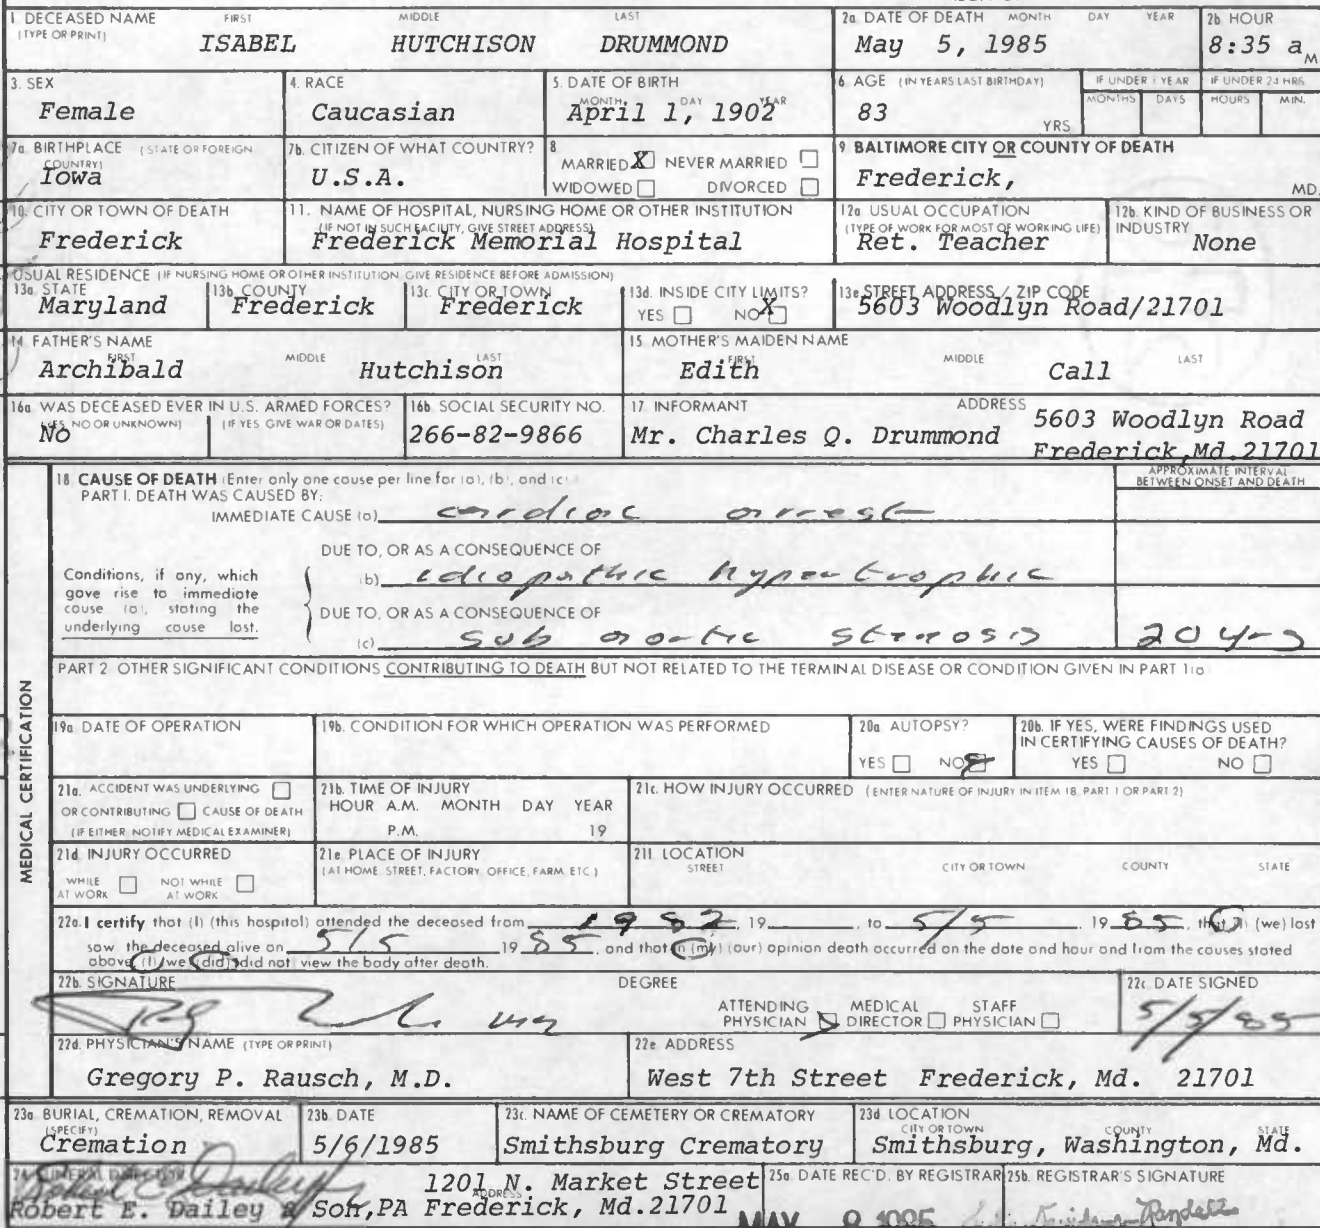 1 DECEASED NAME (TYPE OR PRINT) FIRST MIDDLE LAST
ISABEL HUTCHISON DRUMMOND
2a DATE OF DEATH MONTH DAY YEAR
May 5, 1985
2b HOUR
8:35 a M
3. SEX
Female
4. RACE
Caucasian
5. DATE OF BIRTH
MONTH DAY YEAR
April 1, 1902
6 AGE (IN YEARS LAST BIRTHDAY)
83 YRS
IF UNDER 1 YEAR
MONTHS DAYS
IF UNDER 24 HRS
HOURS MIN.
7a BIRTHPLACE (STATE OR FOREIGN COUNTRY)
Iowa
7b. CITIZEN OF WHAT COUNTRY?
U.S.A.
8
MARRIED X NEVER MARRIED
WIDOWED DIVORCED
9 BALTIMORE CITY OR COUNTY OF DEATH
Frederick, MD.
10 CITY OR TOWN OF DEATH
Frederick
11. NAME OF HOSPITAL, NURSING HOME OR OTHER INSTITUTION
(IF NOT IN SUCH FACILITY, GIVE STREET ADDRESS)
Frederick Memorial Hospital
12a USUAL OCCUPATION
(TYPE OF WORK FOR MOST OF WORKING LIFE)
Ret. Teacher
12b. KIND OF BUSINESS OR INDUSTRY
None
USUAL RESIDENCE (IF NURSING HOME OR OTHER INSTITUTION GIVE RESIDENCE BEFORE ADMISSION)
13a. STATE
Maryland
13b COUNTY
Frederick
13c. CITY OR TOWN
Frederick
13d. INSIDE CITY LIMITS?
YES NO X
13e STREET ADDRESS / ZIP CODE
5603 Woodlyn Road/21701
14 FATHER'S NAME
FIRST MIDDLE LAST
Archibald Hutchison
15 MOTHER'S MAIDEN NAME
FIRST MIDDLE LAST
Edith Call
16a WAS DECEASED EVER IN U.S. ARMED FORCES?
(YES, NO OR UNKNOWN) (IF YES GIVE WAR OR DATES)
No
16b SOCIAL SECURITY NO.
266-82-9866
17 INFORMANT ADDRESS
Mr. Charles Q. Drummond 5603 Woodlyn Road
Frederick,Md.21701
18 CAUSE OF DEATH (Enter only one cause per line for (a), (b), and (c)
PART I. DEATH WAS CAUSED BY:
APPROXIMATE INTERVAL BETWEEN ONSET AND DEATH
IMMEDIATE CAUSE (a) cardiac arrest
DUE TO, OR AS A CONSEQUENCE OF
Conditions, if any, which gave rise to immediate cause (a), stating the underlying cause last.
(b) idiopathic hypertrophic
DUE TO, OR AS A CONSEQUENCE OF
(c) sub aortic stenosis 20 yrs
PART 2 OTHER SIGNIFICANT CONDITIONS CONTRIBUTING TO DEATH BUT NOT RELATED TO THE TERMINAL DISEASE OR CONDITION GIVEN IN PART 1(a)
MEDICAL CERTIFICATION
19a DATE OF OPERATION
19b. CONDITION FOR WHICH OPERATION WAS PERFORMED
20a AUTOPSY?
YES NO
20b. IF YES, WERE FINDINGS USED IN CERTIFYING CAUSES OF DEATH?
YES NO
21a. ACCIDENT WAS UNDERLYING
OR CONTRIBUTING CAUSE OF DEATH
(IF EITHER NOTIFY MEDICAL EXAMINER)
21b. TIME OF INJURY
HOUR A.M. MONTH DAY YEAR
P.M. 19
21c. HOW INJURY OCCURRED (ENTER NATURE OF INJURY IN ITEM 18. PART 1 OR PART 2)
21d INJURY OCCURRED
WHILE AT WORK NOT WHILE AT WORK
21e PLACE OF INJURY
(AT HOME STREET, FACTORY, OFFICE, FARM, ETC.)
21f LOCATION
STREET CITY OR TOWN COUNTY STATE
22a. I certify that (I) (this hospital) attended the deceased from 1982, 19 to 5/5, 1985, that (I) (we) last
saw the deceased alive on 5/5 1985, and that in (my) (our) opinion death occurred on the date and hour and from the causes stated
above. (I) (we) (did) (did not) view the body after death.
22b. SIGNATURE DEGREE
ATTENDING PHYSICIAN MEDICAL DIRECTOR STAFF PHYSICIAN
22c DATE SIGNED
5/5/85
22d. PHYSICIAN'S NAME (TYPE OR PRINT)
Gregory P. Rausch, M.D.
22e ADDRESS
West 7th Street Frederick, Md. 21701
23a BURIAL, CREMATION, REMOVAL (SPECIFY)
Cremation
23b. DATE
5/6/1985
23c. NAME OF CEMETERY OR CREMATORY
Smithsburg Crematory
23d LOCATION
CITY OR TOWN COUNTY STATE
Smithsburg, Washington, Md.
24 FUNERAL DIRECTOR
ADDRESS
1201 N. Market Street
Robert E. Dailey & Son,PA Frederick, Md.21701
25a. DATE REC'D. BY REGISTRAR
MAY 9 1985
25b. REGISTRAR'S SIGNATURE